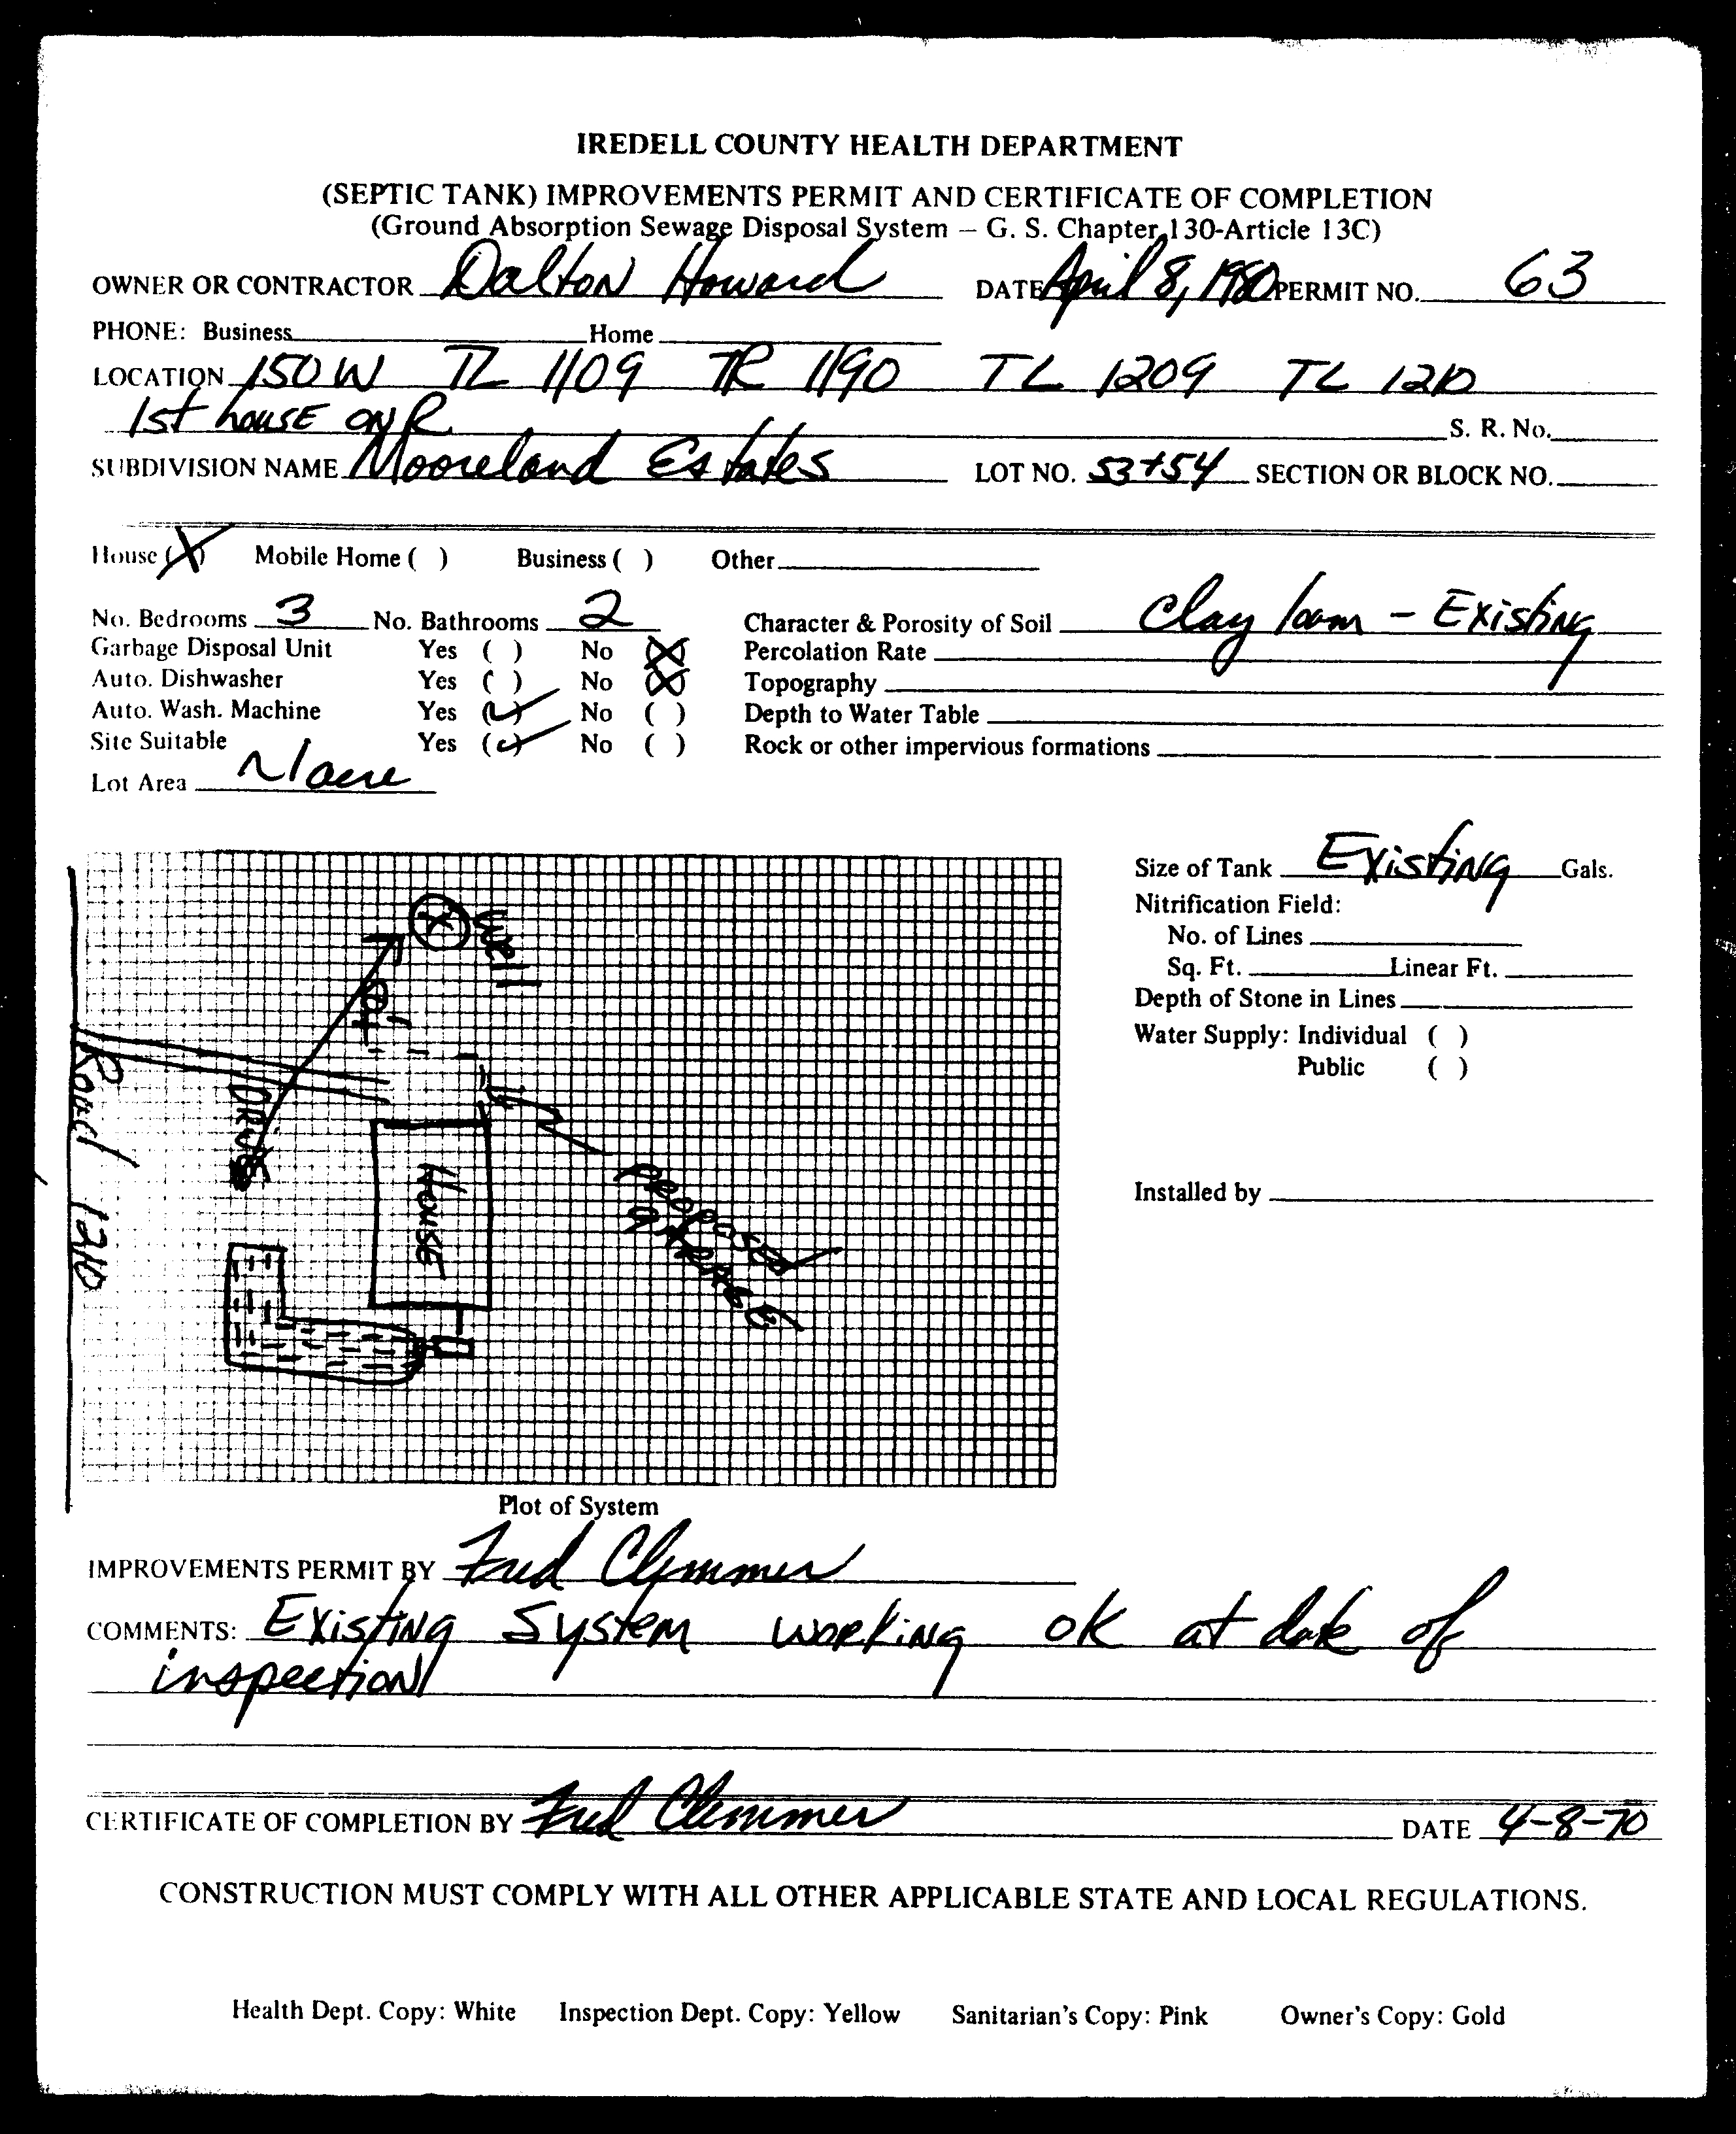 IREDELL COUNTY HEALTH DEPARTMENT
(SEPTIC TANK) IMPROVEMENTS PERMIT AND CERTIFICATE OF COMPLETION
(Ground Absorption Sewage Disposal System – G. S. Chapter 130-Article 13C)
OWNER OR CONTRACTOR Dalton Howard DATE April 8, 1980 PERMIT NO. 63
PHONE: Business Home
LOCATION 150 W TL 1109 TR 1190 TL 1209 TL 1210
1st house on R S. R. No.
SUBDIVISION NAME Mooreland Estates LOT NO. 53+54 SECTION OR BLOCK NO.
House (X) Mobile Home ( ) Business ( ) Other
No. Bedrooms 3 No. Bathrooms 2 Character & Porosity of Soil Clay loam - Existing
Garbage Disposal Unit Yes ( ) No (X) Percolation Rate
Auto. Dishwasher Yes ( ) No (X) Topography
Auto. Wash. Machine Yes (✓) No ( ) Depth to Water Table
Site Suitable Yes (✓) No ( ) Rock or other impervious formations
Lot Area ~1 acre
Size of Tank Existing Gals.
Nitrification Field:
No. of Lines
Sq. Ft. Linear Ft.
Depth of Stone in Lines
Water Supply: Individual ( )
Public ( )
Installed by
Well
Road 1210
Drive
House
Proposed
Plot of System
IMPROVEMENTS PERMIT BY Fred Clemmer
COMMENTS: Existing System working ok at date of
inspection
CERTIFICATE OF COMPLETION BY Fred Clemmer DATE 4-8-70
CONSTRUCTION MUST COMPLY WITH ALL OTHER APPLICABLE STATE AND LOCAL REGULATIONS.
Health Dept. Copy: White Inspection Dept. Copy: Yellow Sanitarian's Copy: Pink Owner's Copy: Gold